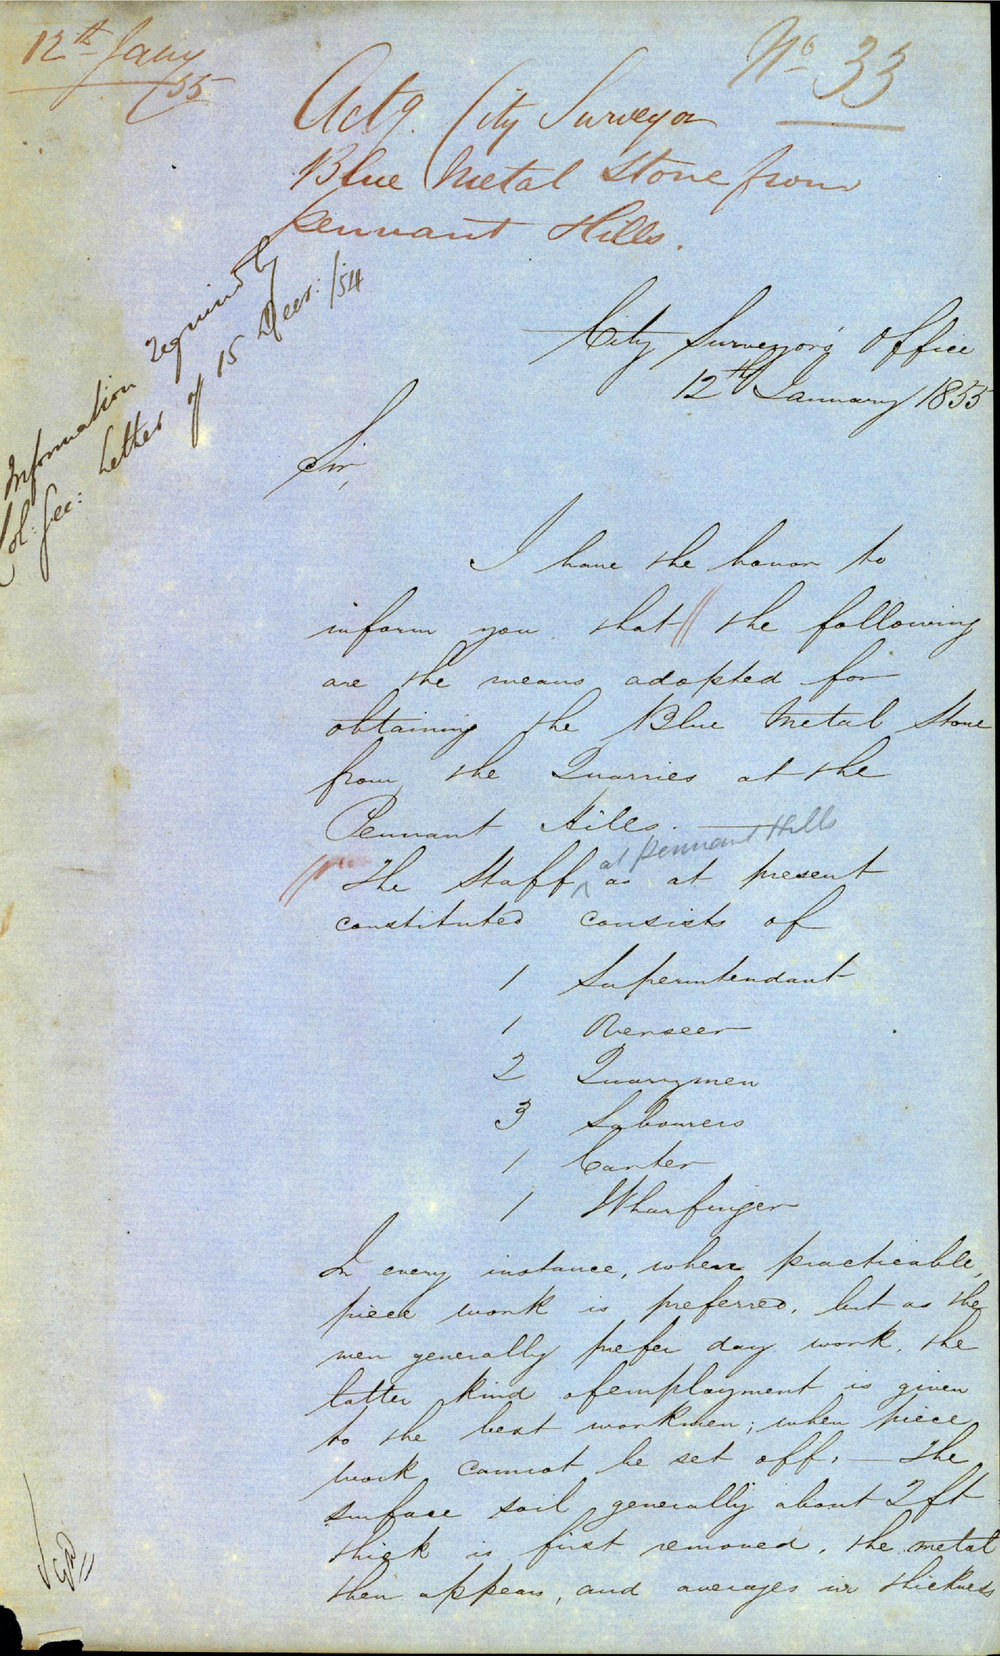 12th Jany
/55
No 33
Actg. City Surveyor
Blue Metal Stone from
Pennant Hills.
Information required by
Col: Sec: Letter of 15 Decr: /54
City Surveyor's Office
12th January 1855
Sir,
I have the honor to
inform you that // the following
are the means adopted for
obtaining the Blue Metal Stone
from the Quarries at the
Pennant Hills. —
at Pennant Hills
// The Staff ^ as at present
constituted consists of
1 Superintendant
1 Overseer
2 Quarrymen
3 Labourers
1 Carter
1 Wharfinger
In every instance, where practicable,
piece work is preferred, but as the
men generally prefer day work, the
latter kind of employment is given
to the best workmen; when piece
work cannot be set off. — The
surface soil generally about 2 ft
thick is first removed, the metal
then appears, and averages in thickness